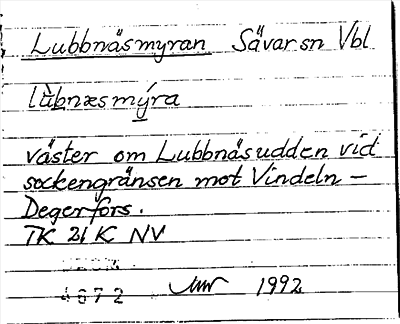 Lubbnäsmyran Sävar sn Vbl
lùbnæsmýra
väster om Lubbnäsudden vid
sockengränsen mot Vindeln –
Degerfors.
TK 21 K NV
4672 1992